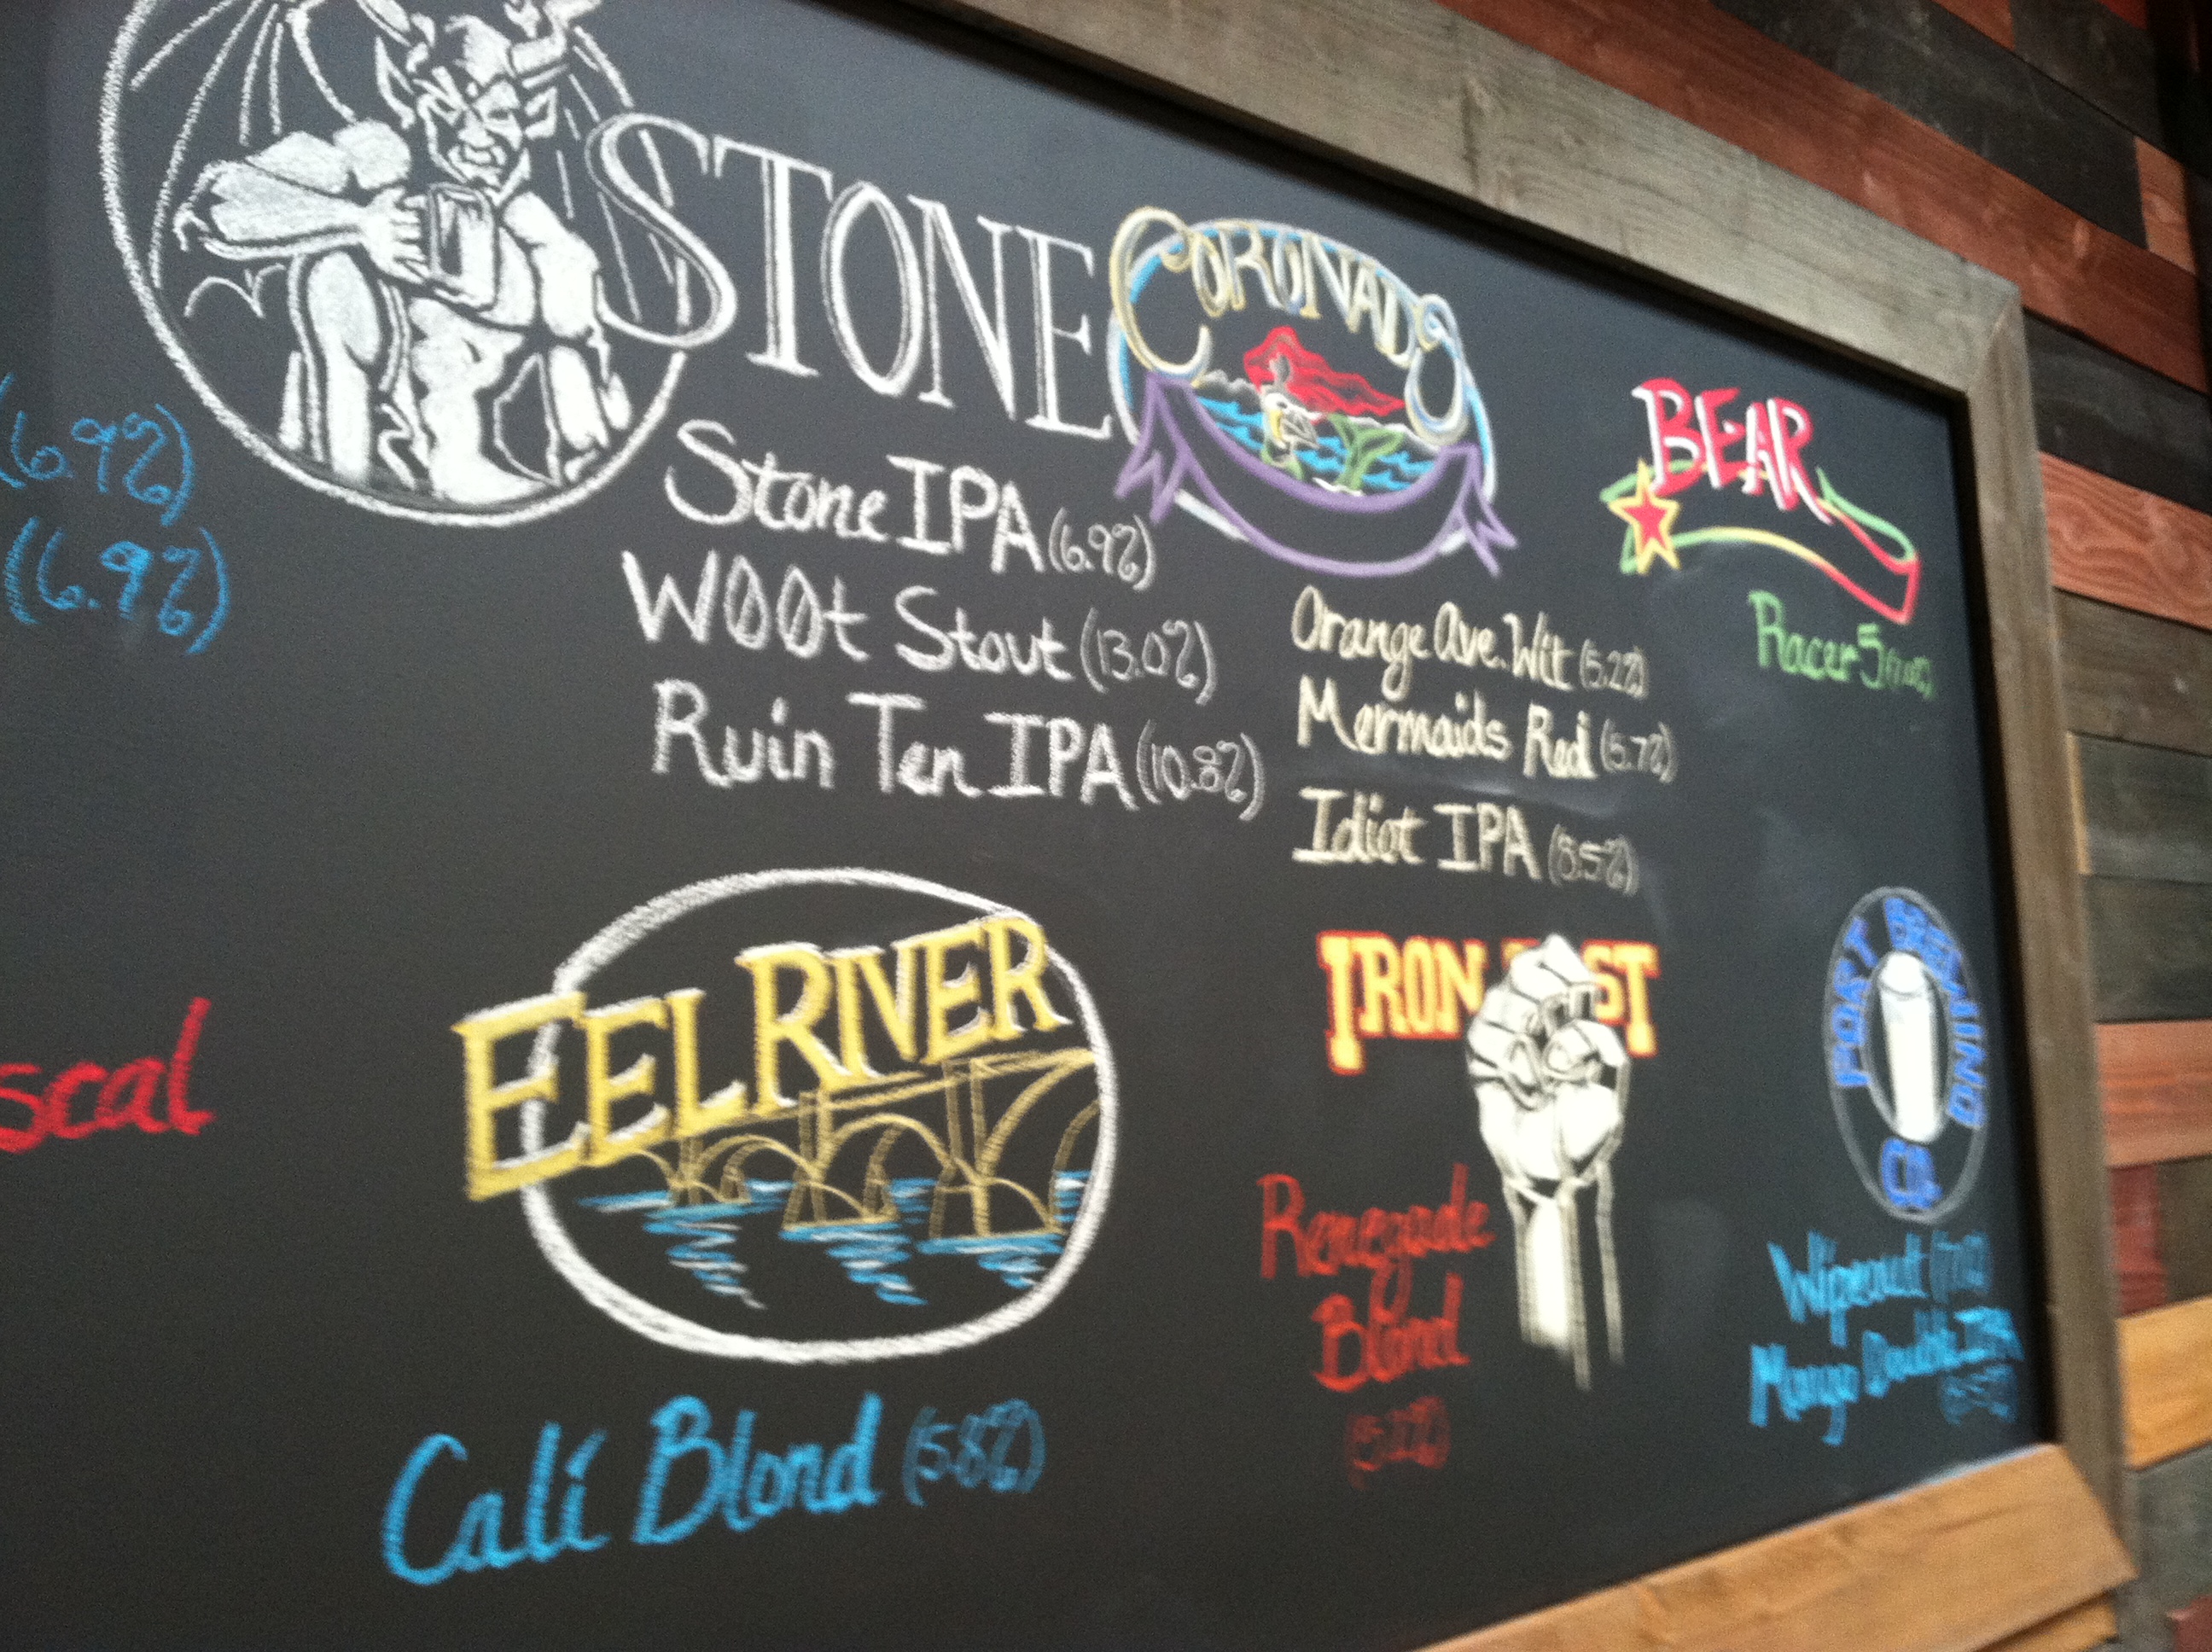 (6.9%)
(6.9%)
STONE
Stone IPA (6.9%)
W00t Stout (13.0%)
Ruin Ten IPA (10.8%)
CORONADO
Orange Ave. Wit (5.2%)
Mermaids Red (5.7%)
Idiot IPA (8.5%)
BEAR
Racer 5 (7.0%)
scal
EEL RIVER
Cali Blond (5.8%)
IRON FIST
Renegade
Blond
PORT BREWING
CO.
Wipeout (7.0%)
Mango Double IPA